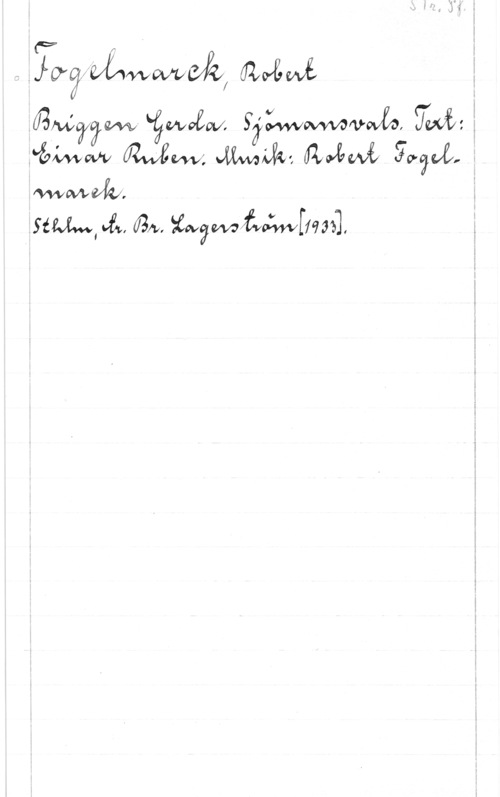 Fogelmarck, Robert
Briggen Gerda. Sjömansvals. Text:
Einar Ruben. Musik: Robert Fogel-
marck.
Sthlm, tr. Br. Lagerström [1933].